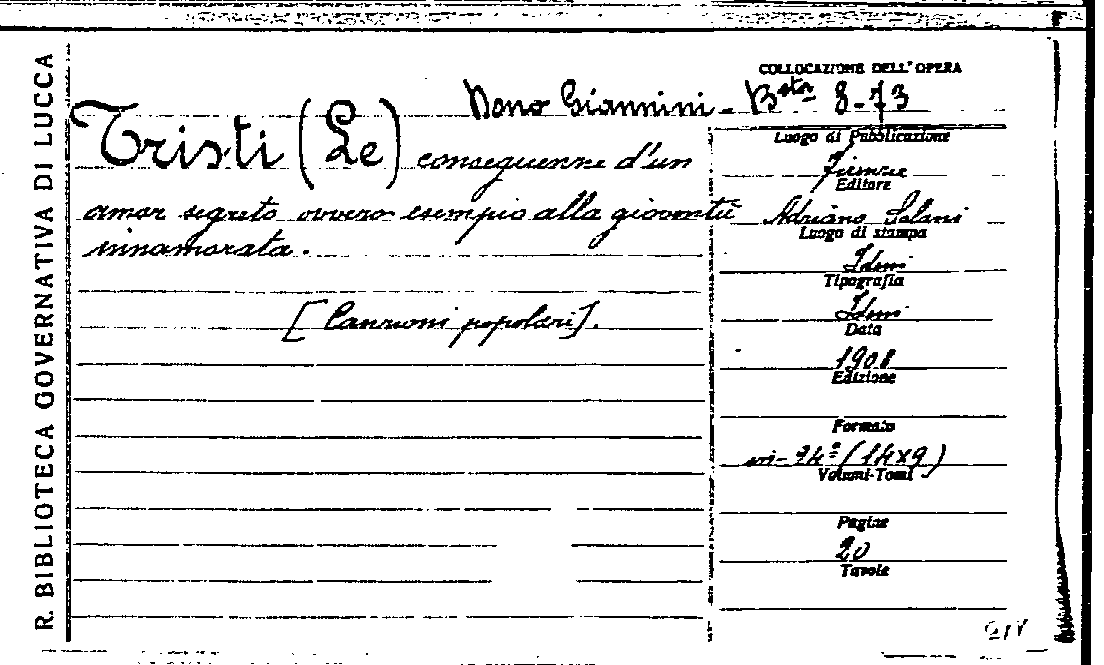 R. BIBLIOTECA GOVERNATIVA DI LUCCA
COLLOCAZIONE DELL'OPERA
Dono Giannini - Bsta 8-73
Tristi (Le) conseguenze d'un
amor segreto ovvero esempio alla gioventù
innamorata.
[Canzoni popolari].
Luogo di Pubblicazione
Firenze
Editore
Adriano Salani
Luogo di stampa
Idem
Tipografia
Idem
Data
1908
Edizione
Formato
in-24° (14x9)
Volumi-Tomi
Pagine
20
Tavole